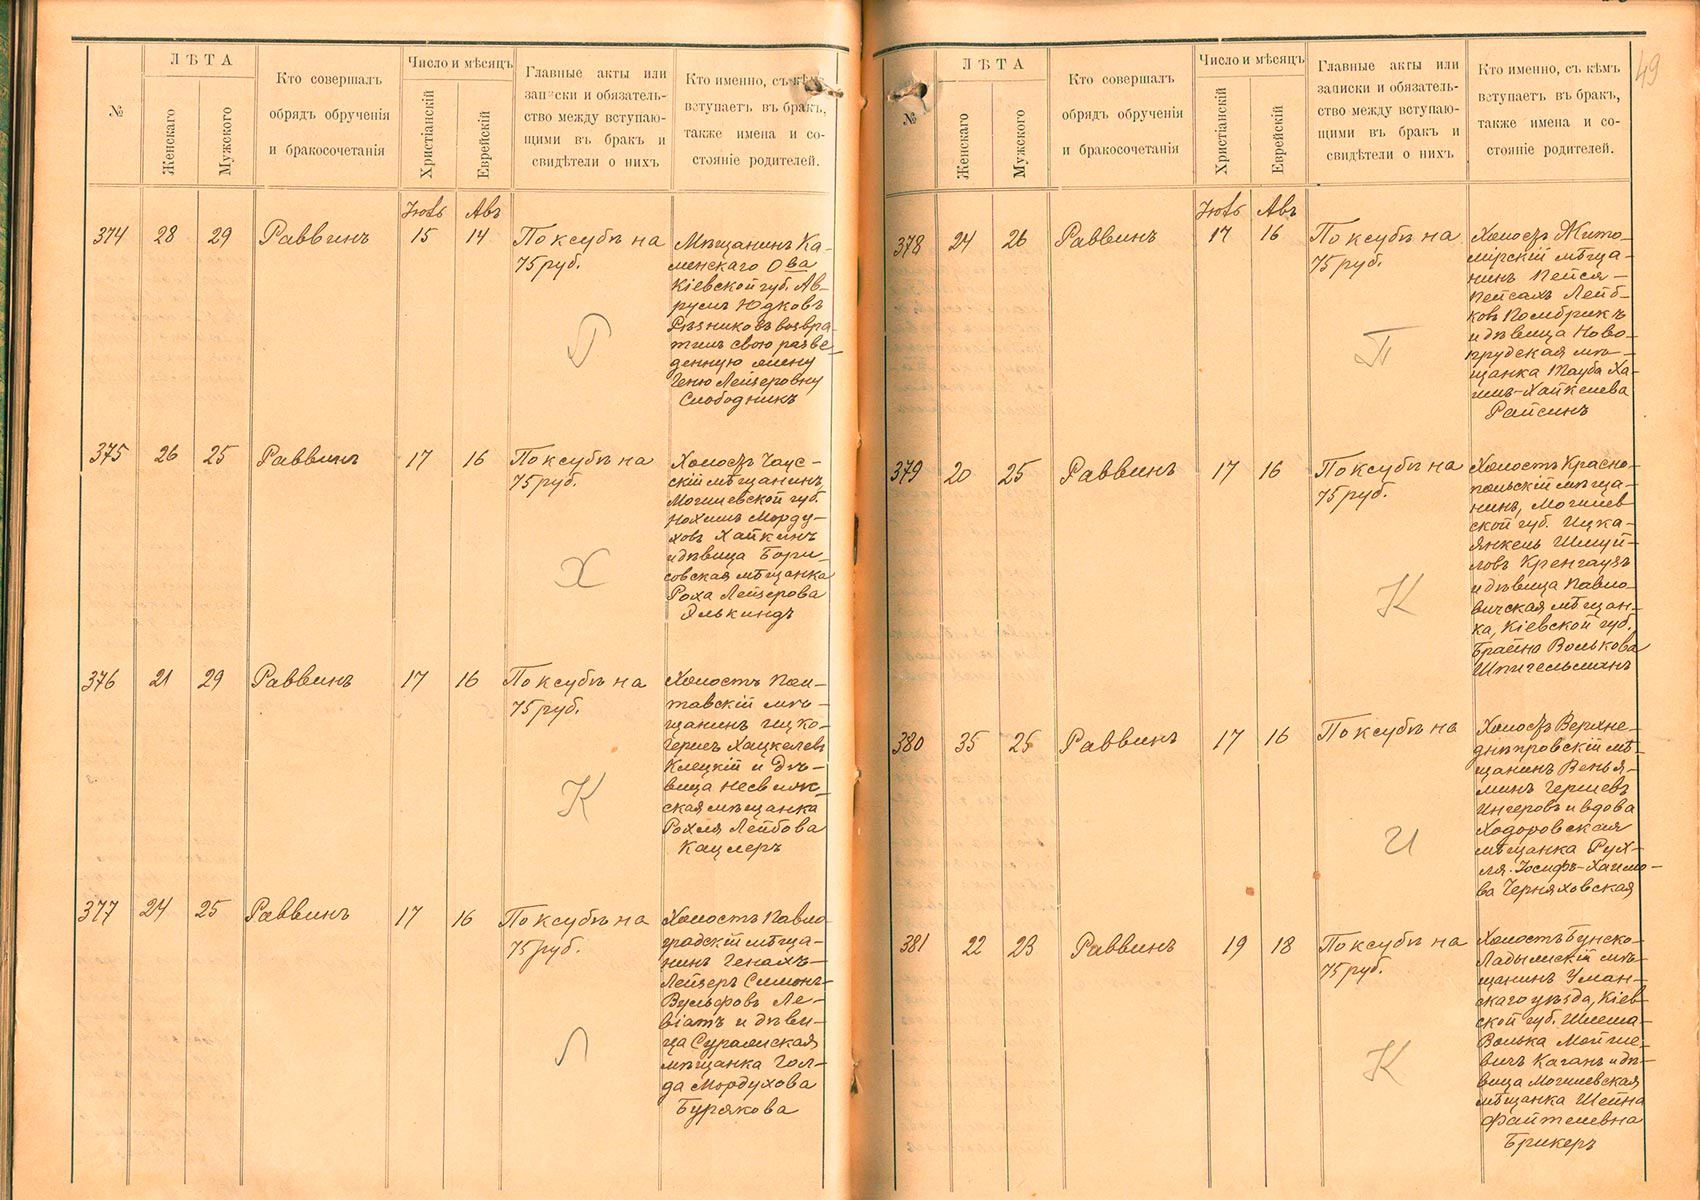 ЛѢТА
Число и мѣсяцъ
№
Женскаго
Мужского
Кто совершалъ
обрядъ обрученія
и бракосочетанія
Христіанскій
Еврейскій
Главные акты или
записки и обязатель-
ство между вступаю-
щими въ бракъ и
свидѣтели о нихъ
Кто именно, съ кѣмъ
вступаетъ въ бракъ,
также имена и со-
стояніе родителей.
Іюль Авъ
374 28 29 Раввинъ 15 14
По ксубѣ на
75 руб.
Мѣщанинъ Ка-
менскаго О-ва
Кіевской губ. Ав-
румъ Юдковъ
Рѣзниковъ возвра-
тилъ свою разве-
денную жену
Геню Лейзеровну
Слободникъ
Р
375 26 25 Раввинъ 17 16
По ксубѣ на
75 руб.
Холостъ Чаус-
скій мѣщанинъ,
Могилевской губ.
Нохимъ Морду-
ховъ Хайкинъ
и дѣвица Бори-
совская мѣщанка
Роха Лейзерова
Элькиндъ
Х
376 21 29 Раввинъ 17 16
По ксубѣ на
75 руб.
Холостъ Пол-
тавскій мѣ-
щанинъ Ицко-
Гершъ Хацкелевъ
Клецкій и дѣ-
вица Несвиж-
ская мѣщанка
Рохля Лейбова
Кацлеръ
К
377 24 25 Раввинъ 17 16
По ксубѣ на
75 руб.
Холостъ Павло-
градскій мѣща-
нинъ Генахъ-
Лейзеръ Симонъ-
Вульфовъ Ле-
віатъ и дѣви-
ца Суражская
мѣщанка Гол-
да Мордухова
Бурякова
Л
49
ЛѢТА
Число и мѣсяцъ
№
Женскаго
Мужского
Кто совершалъ
обрядъ обрученія
и бракосочетанія
Христіанскій
Еврейскій
Главные акты или
записки и обязатель-
ство между вступаю-
щими въ бракъ и
свидѣтели о нихъ
Кто именно, съ кѣмъ
вступаетъ въ бракъ,
также имена и со-
стояніе родителей.
Іюль Авъ
378 24 26 Раввинъ 17 16
По ксубѣ на
75 руб.
Холостъ Жито-
мирскій мѣща-
нинъ Пейся-
Пейсахъ Лейб-
ковъ Помбрикъ
и дѣвица Ново-
прудская мѣ-
щанка Тауба Ха-
имъ-Хайкелева
Райсинъ
П
379 20 25 Раввинъ 17 16
По ксубѣ на
75 руб.
Холостъ Красно-
польскій мѣща-
нинъ, Могилев-
ской губ. Ицка-
Янкель Шмуй-
ловъ Кренгаузъ
и дѣвица Павло-
вичская мѣщан-
ка, Кіевской губ.
Брайна Волькова
Шпигельманъ
К
380 35 25 Раввинъ 17 16
По ксубѣ на
Холостъ Верхне-
днѣпровскій мѣ-
щанинъ Венья-
минъ Гершевъ
Ингеровъ и вдова
Ходоровская
мѣщанка Рух-
ля-Іосифъ-Хаимо-
ва Черняховская
И
381 22 23 Раввинъ 19 18
По ксубѣ на
75 руб.
Холостъ
Ладыжскій мѣ-
щанинъ Уман-
скаго уѣзда, Кіев-
ской губ. Шлема-
Волька Мойше-
вичъ Каганъ и дѣ-
вица Могилевская
мѣщанка Шейна
Файтелевна
Брикеръ
К